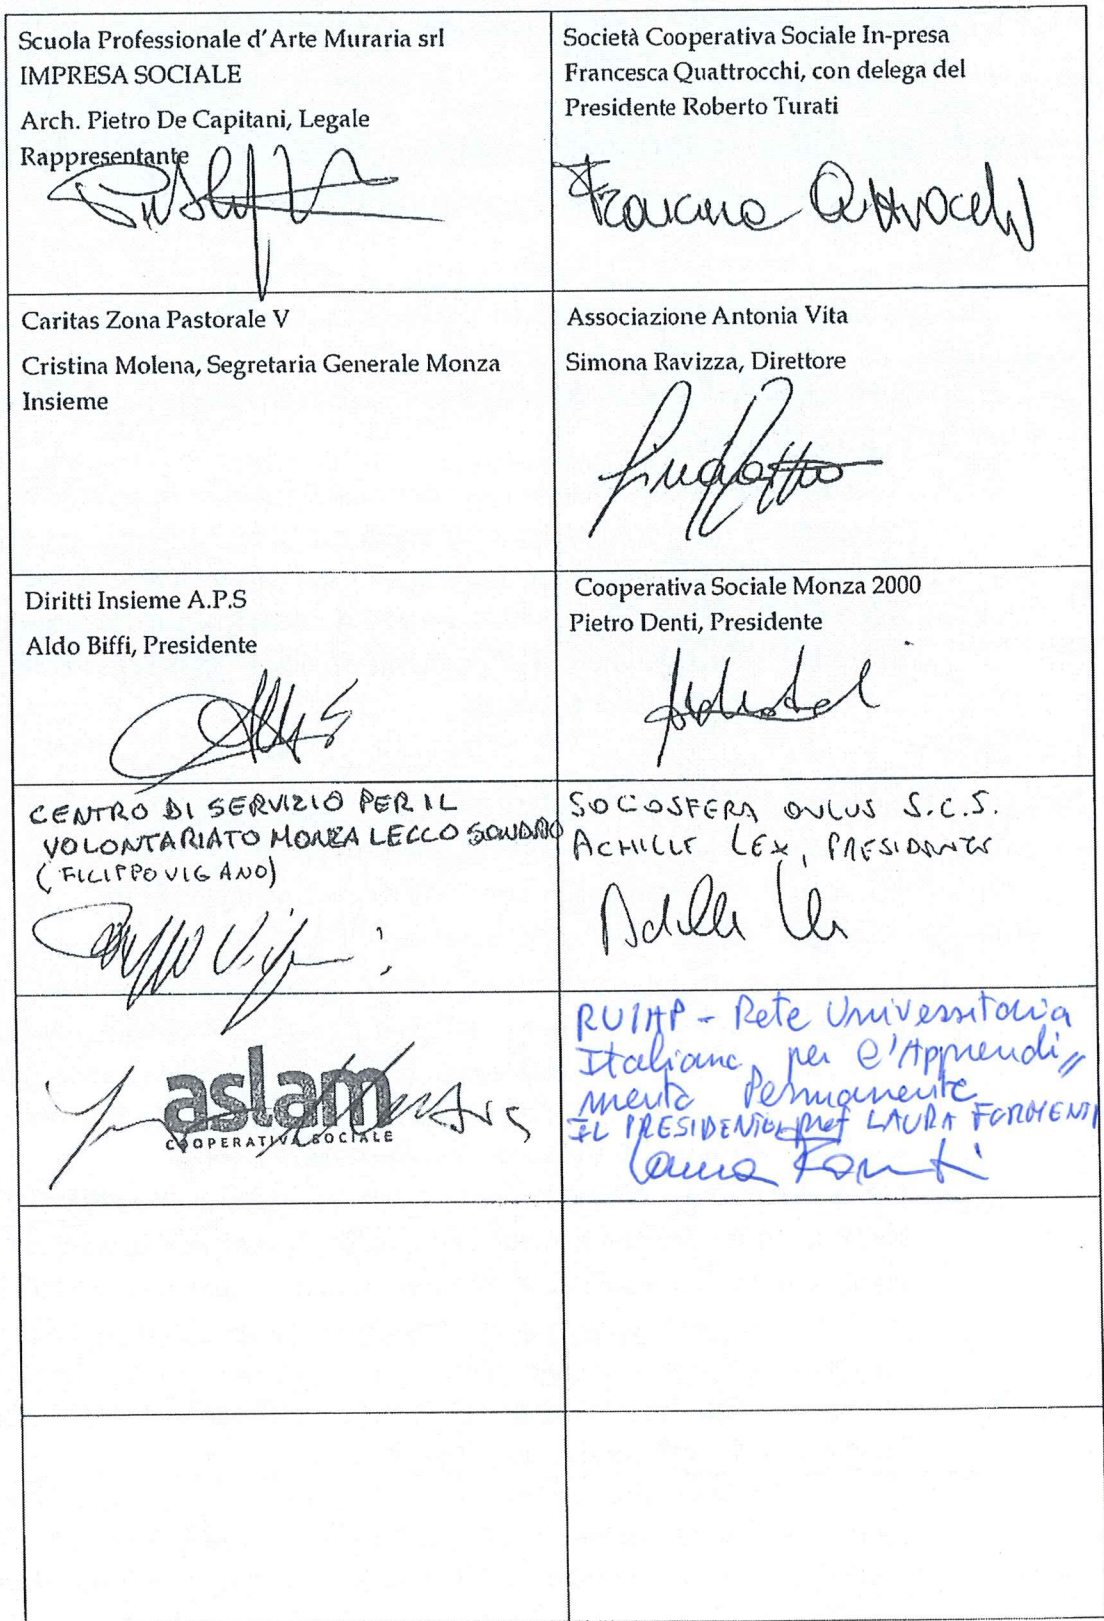 Scuola Professionale d'Arte Muraria srl
IMPRESA SOCIALE
Arch. Pietro De Capitani, Legale
Rappresentante
Società Cooperativa Sociale In-presa
Francesca Quattrocchi, con delega del
Presidente Roberto Turati
Francesca Quattrocchi
Caritas Zona Pastorale V
Cristina Molena, Segretaria Generale Monza
Insieme
Associazione Antonia Vita
Simona Ravizza, Direttore
Diritti Insieme A.P.S
Aldo Biffi, Presidente
Cooperativa Sociale Monza 2000
Pietro Denti, Presidente
CENTRO DI SERVIZIO PER IL
VOLONTARIATO MONZA LECCO SONDRIO
(FILIPPO VIGANO)
SOCIOSFERA ONLUS S.C.S.
ACHILLE LEX, PRESIDENTE
Achille Lex
aslam
COOPERATIVA SOCIALE
RUIAP - Rete Universitaria
Italiana per l'Apprendi〃
mento Permanente
IL PRESIDENTE prof LAURA FORMENTI
Laura Formenti